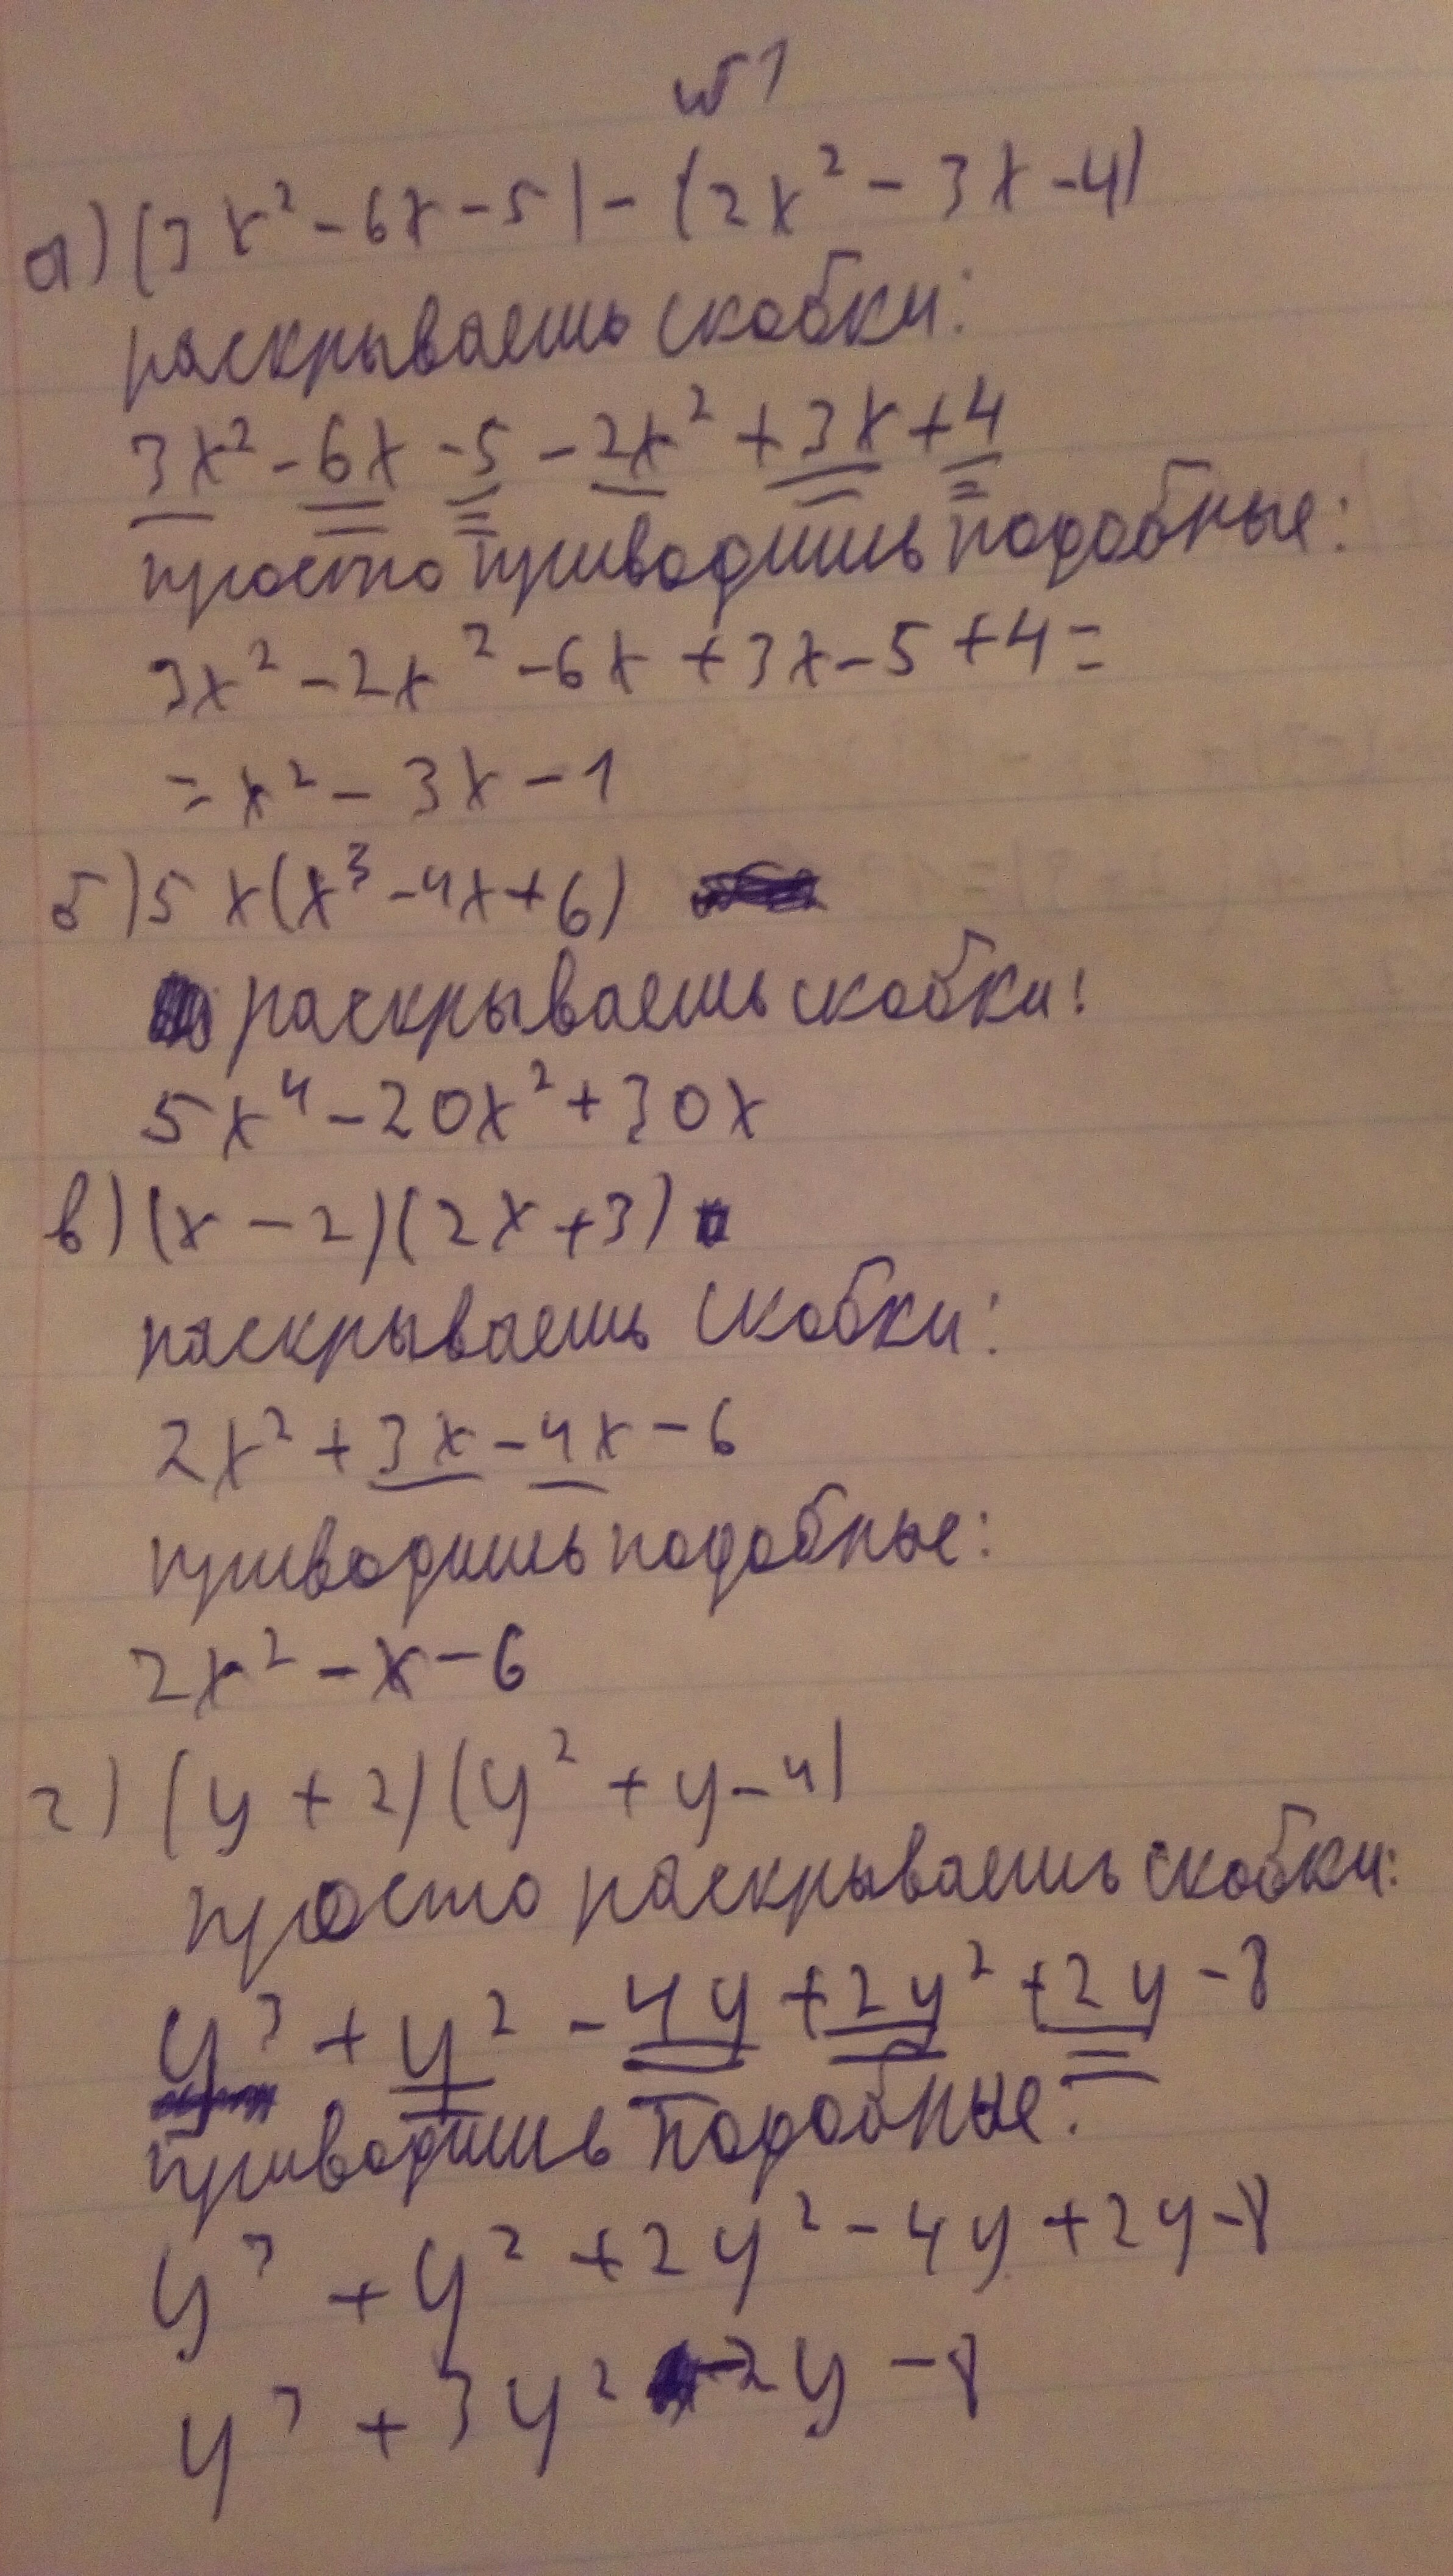 №1
а) (3x² - 6x - 5) - (2x² - 3x - 4)
раскрываешь скобки:
3x² - 6x - 5 - 2x² + 3x + 4
просто приводишь подобные:
3x² - 2x² - 6x + 3x - 5 + 4 =
= x² - 3x - 1
б) 5x(x³ - 4x + 6)
раскрываешь скобки:
5x⁴ - 20x² + 30x
в) (x - 2)(2x + 3)
раскрываешь скобки:
2x² + 3x - 4x - 6
приводишь подобные:
2x² - x - 6
г) (y + 2)(y² + y - 4)
просто раскрываешь скобки:
y³ + y² - 4y + 2y² + 2y - 8
приводишь подобные:
y³ + y² + 2y² - 4y + 2y - 8
y³ + 3y² - 2y - 8